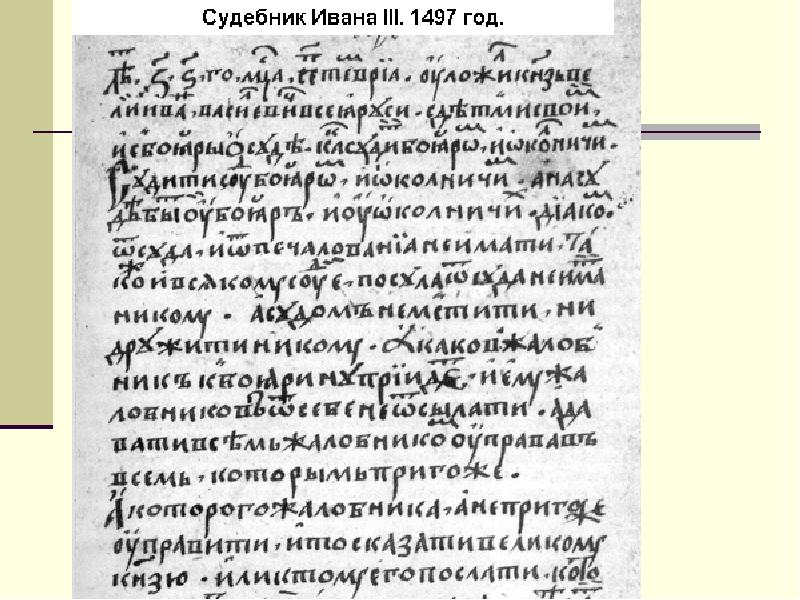 Судебник Ивана III. 1497 год.
лѣ. ҂ѕ. ѕ. го. мⷭ҇ца. септеврїа. оуложи кнѧзь ве
ликии Іва, василевич всеѧ рꙋси. с дѣтми своими,
и с боѧры ѡ сꙋдѣ. как сꙋдити боѧром, и ѡколничим.
Сꙋдити сꙋд боѧром, и ѡколничим. а на сꙋ
дѣ быти оу боѧръ. и оу ѡколничих. дїаком.
ѿ сꙋда, и ѿ печалованїа не имати. та
кож и всякомꙋ сꙋдїе. посꙋла ѿ сꙋда не имати
никомꙋ. а сꙋдом не мстити, ни
дрꙋжити никомꙋ. а каков жалоб
никъ к боѧринꙋ прїидет. и емꙋ жа
лобников ѿ себе не ѿсылати. а да
вати всѣмъ жалобником оуправа въ
всемь, которымъ пригоже.
А которого жалобника, а не пригоже
оуправити, и то сказати великомꙋ
кнѧзю. или к томꙋ его послати. кото